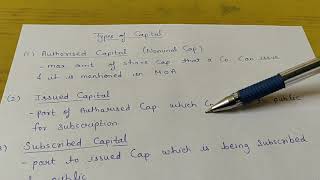 Types of Capital
(1) Authorised Capital (Nominal Cap)
- max amt of share Cap that a Co. Can issue
& it is mentioned in MOA
(2) Issued Capital
- part of Authorised Cap which public
for subscription
) Subscribed Capital
- part to issued Cap which is being subscribed
public